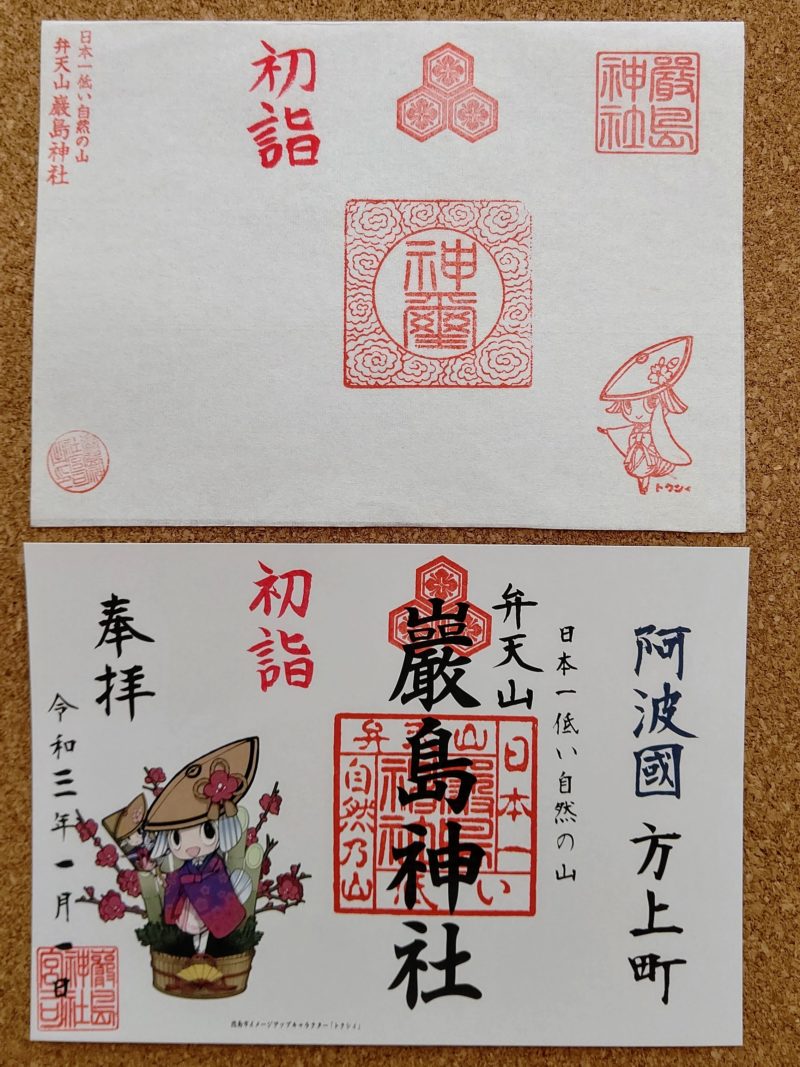 厳島神社
初詣
日本一低い自然の山
弁天山 巌島神社
神璽
トクシィ
阿波國 方上町
日本一低い自然の山
弁天山
巌島神社
日本一低い
弁天山
自然乃山
初詣
奉拝
令和三年一月一日
巌島神社宮司
徳島市イメージアップキャラクター「トクシィ」